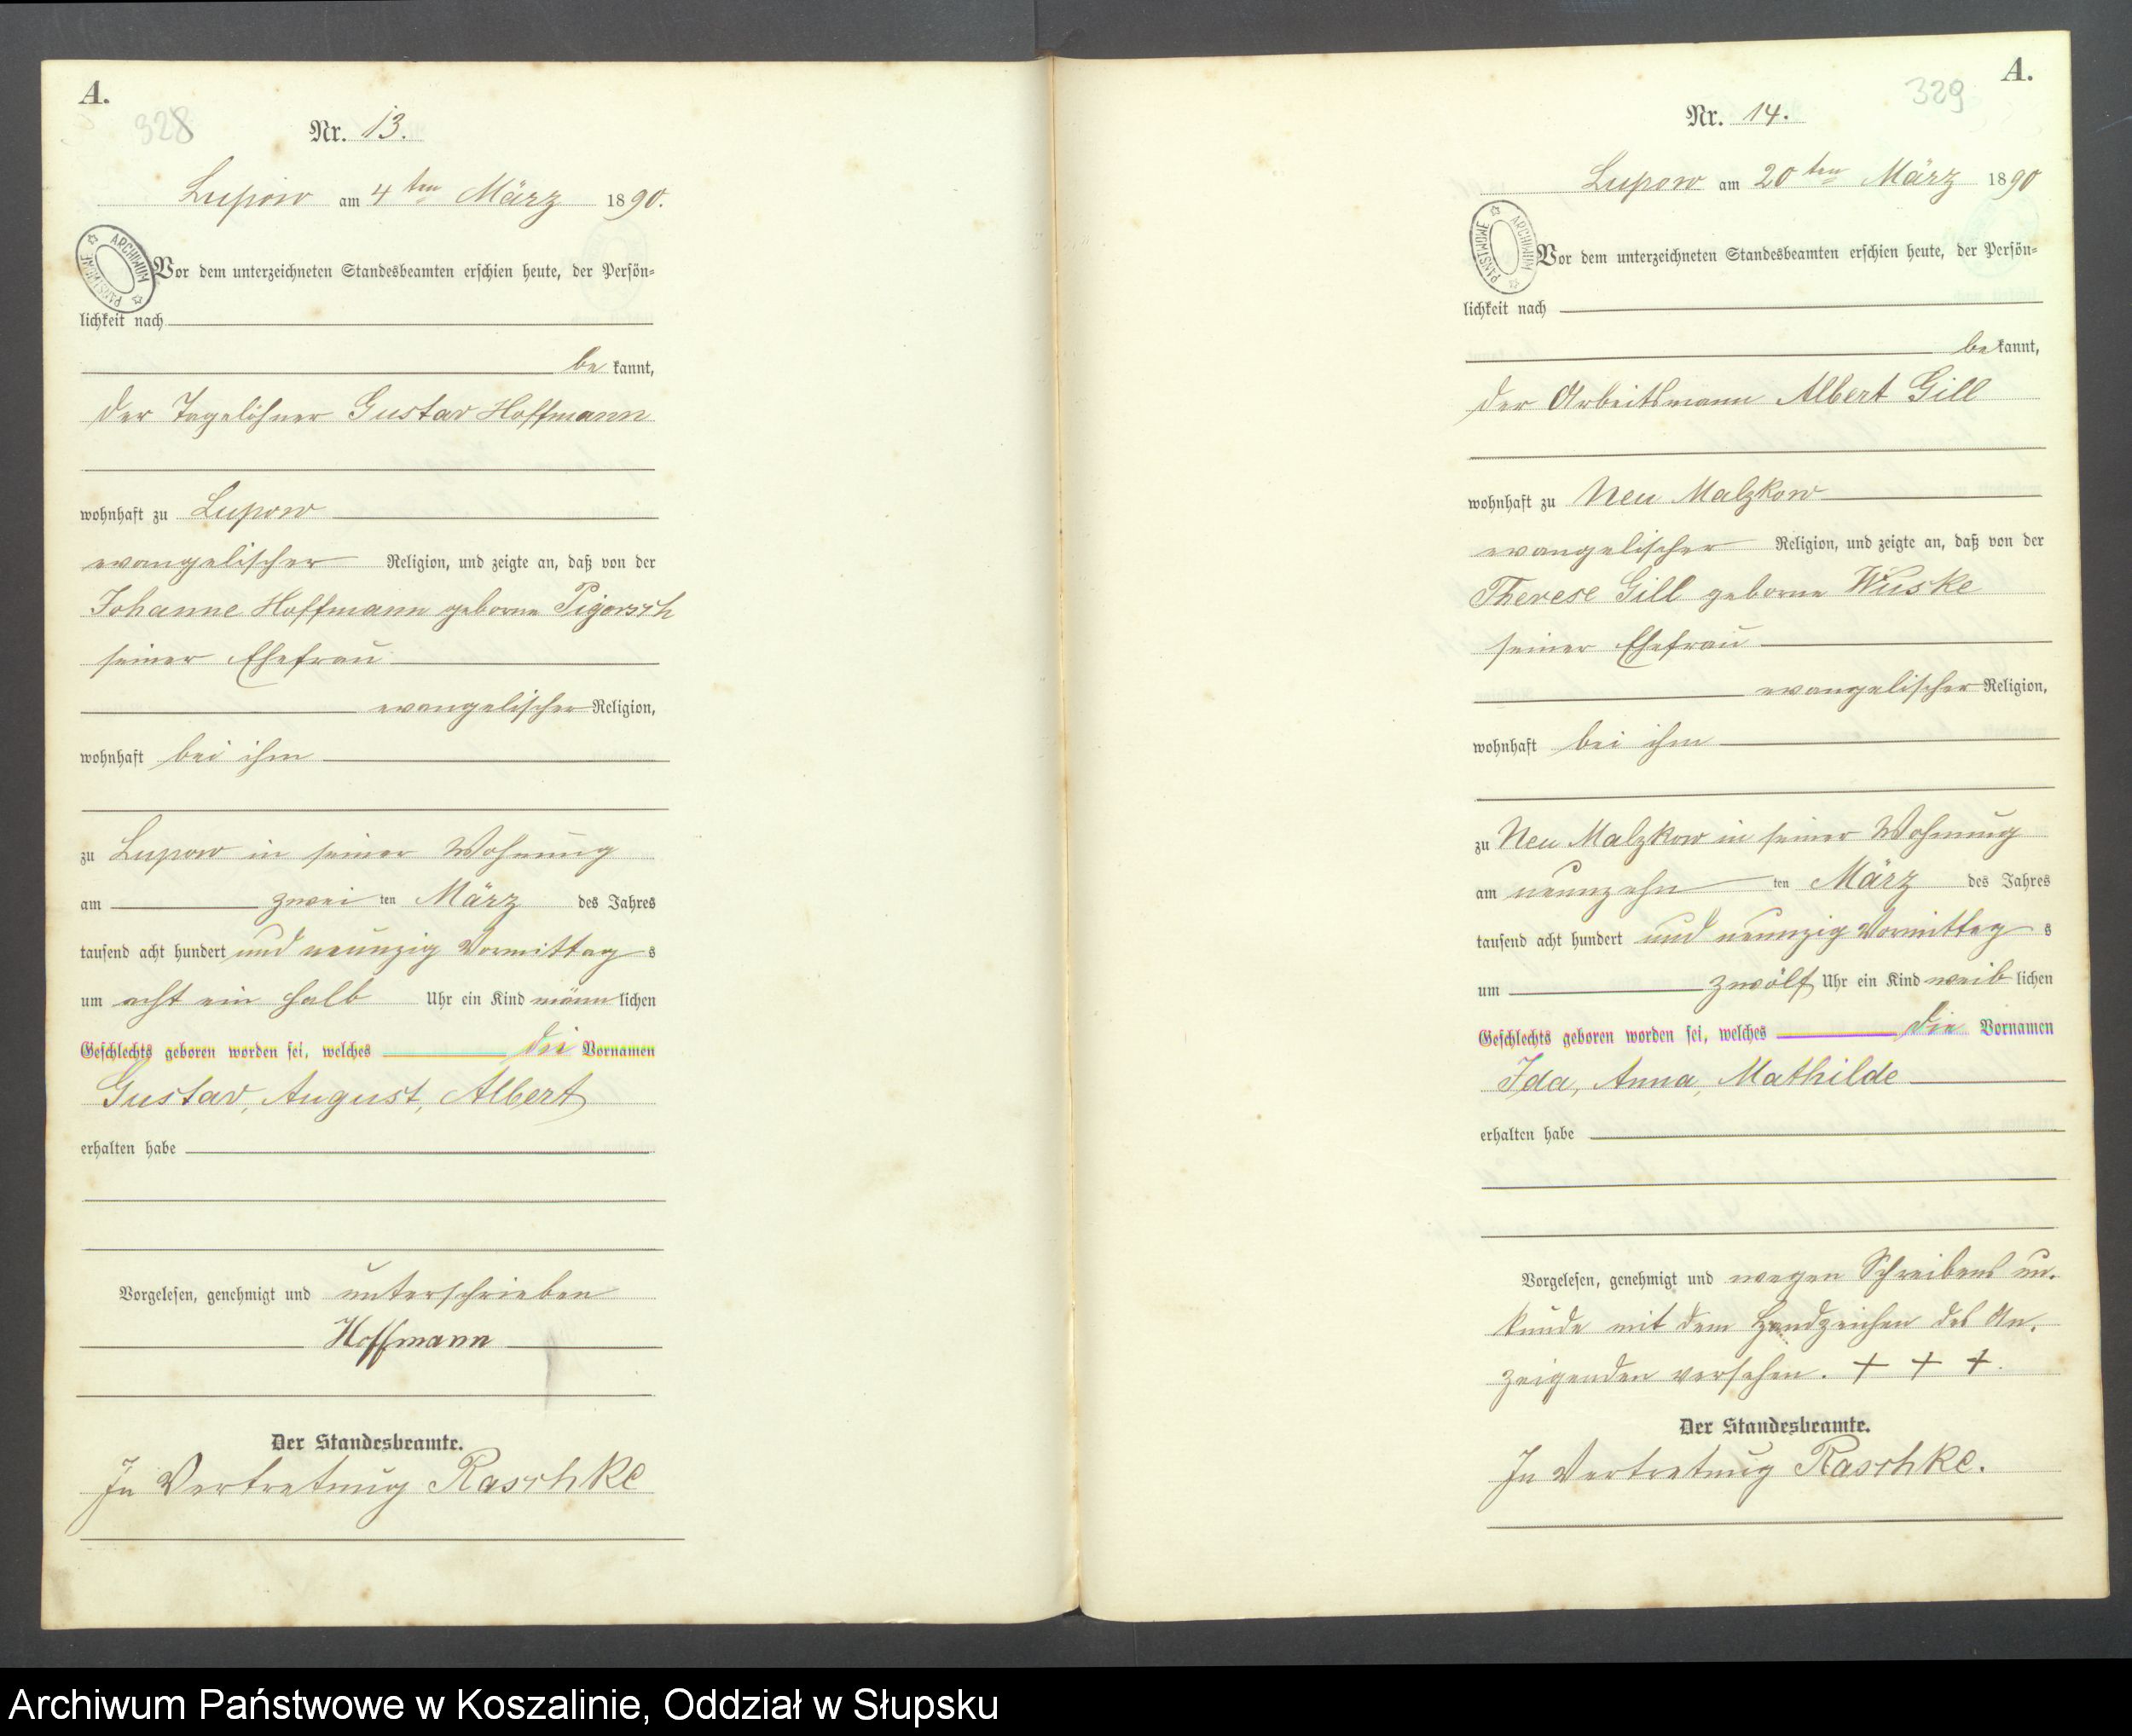 A.
328
Nr. 13.
Lupow am 4ten März 1890.
ARCHIWUM PAŃSTWOWE
Vor dem unterzeichneten Standesbeamten erschien heute, der Persön-
lichkeit nach
be kannt,
der Tagelöhner Gustav Hoffmann
wohnhaft zu Lupow
evangelischer Religion, und zeigte an, daß von der
Johanne Hoffmann geborne Pigorsch
seiner Ehefrau
evangelischer Religion,
wohnhaft bei ihm
zu Lupow in seiner Wohnung
am zwei ten März des Jahres
tausend acht hundert und neunzig Vormittag s
um acht ein halb Uhr ein Kind männ lichen
Geschlechts geboren worden sei, welches die Vornamen
Gustav, August, Albert
erhalten habe
Vorgelesen, genehmigt und unterschrieben
Hoffmann
Der Standesbeamte.
In Vertretung Raschke
A.
329
Nr. 14.
Lupow am 20ten März 1890
ARCHIWUM PAŃSTWOWE
Vor dem unterzeichneten Standesbeamten erschien heute, der Persön-
lichkeit nach
be kannt,
der Arbeitsmann Albert Gill
wohnhaft zu Neu Malzkow
evangelischer Religion, und zeigte an, daß von der
Therese Gill geborne Wuske
seiner Ehefrau
evangelischer Religion,
wohnhaft bei ihm
zu Neu Malzkow in seiner Wohnung
am neunzehn ten März des Jahres
tausend acht hundert und neunzig Vormittag s
um zwölf Uhr ein Kind weib lichen
Geschlechts geboren worden sei, welches die Vornamen
Ida, Anna, Mathilde
erhalten habe
Vorgelesen, genehmigt und wegen Schreibens un-
kunde mit dem Handzeichen des An-
zeigenden versehen. + + +.
Der Standesbeamte.
In Vertretung Raschke.
Archiwum Państwowe w Koszalinie, Oddział w Słupsku